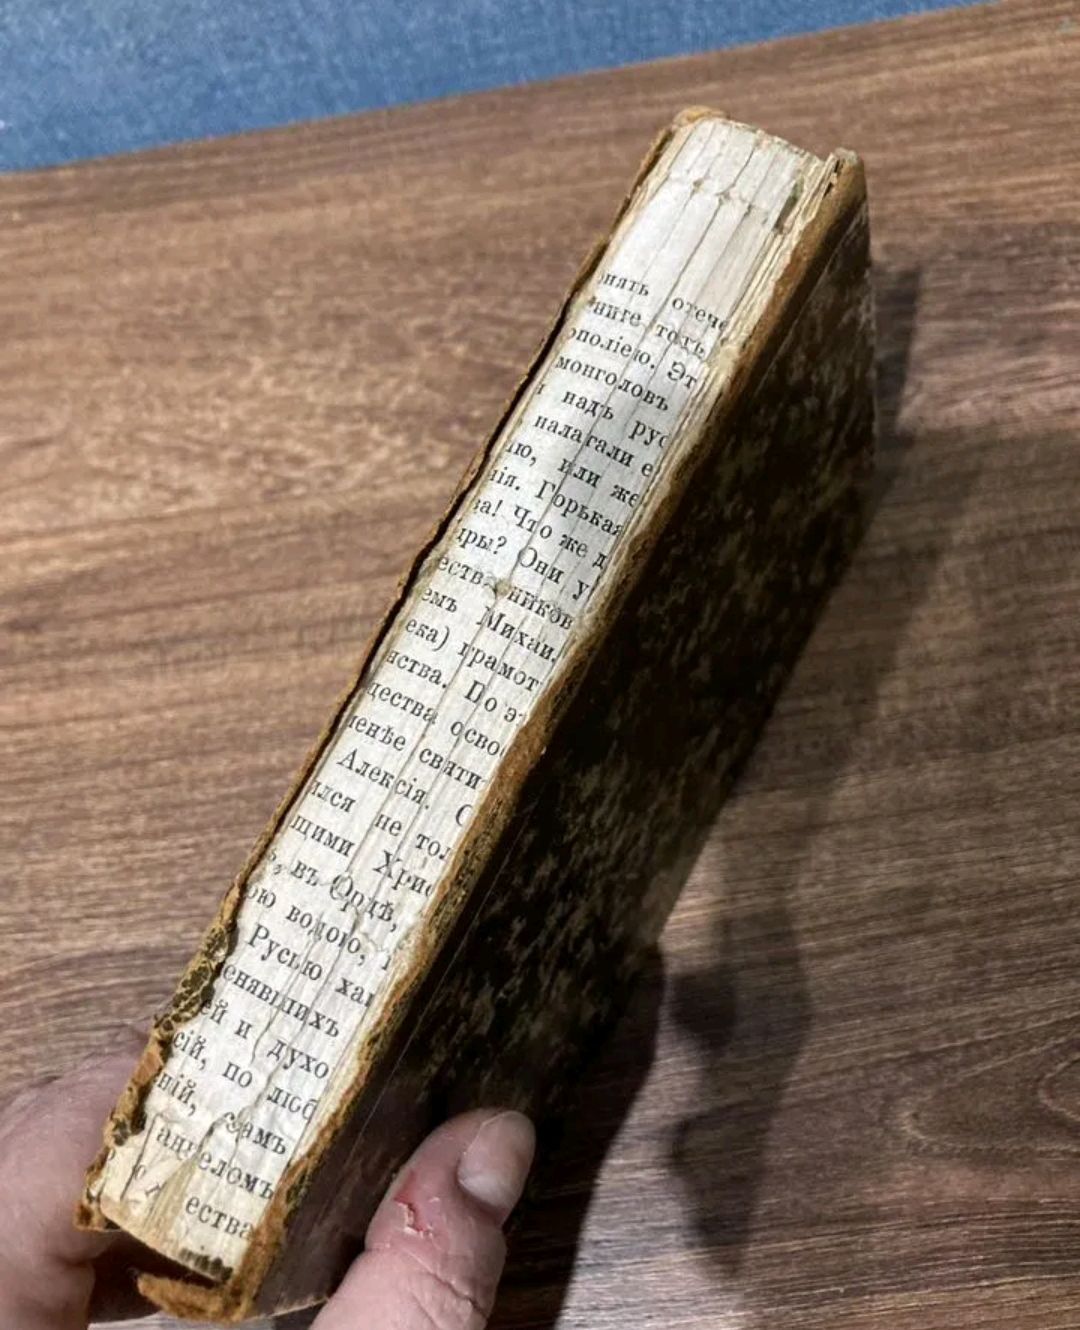 нять отече
ниге тотъ
ополіею. Эт
монголовъ
надъ рус
налагали е
ію, или же
нія. Горькая
ва! Что же д
цры? Они у
ественников
емъ Михаи.
ека) грамот
нства. По э
щества осво
менѣе святи
Алексія. С
ился не тол
щими Хрис
ъ, въ Ордѣ,
ою волою, п
Русью хан
енявшихъ
ей и духо
сій, по люб
ній, самъ
ангеломъ
ества